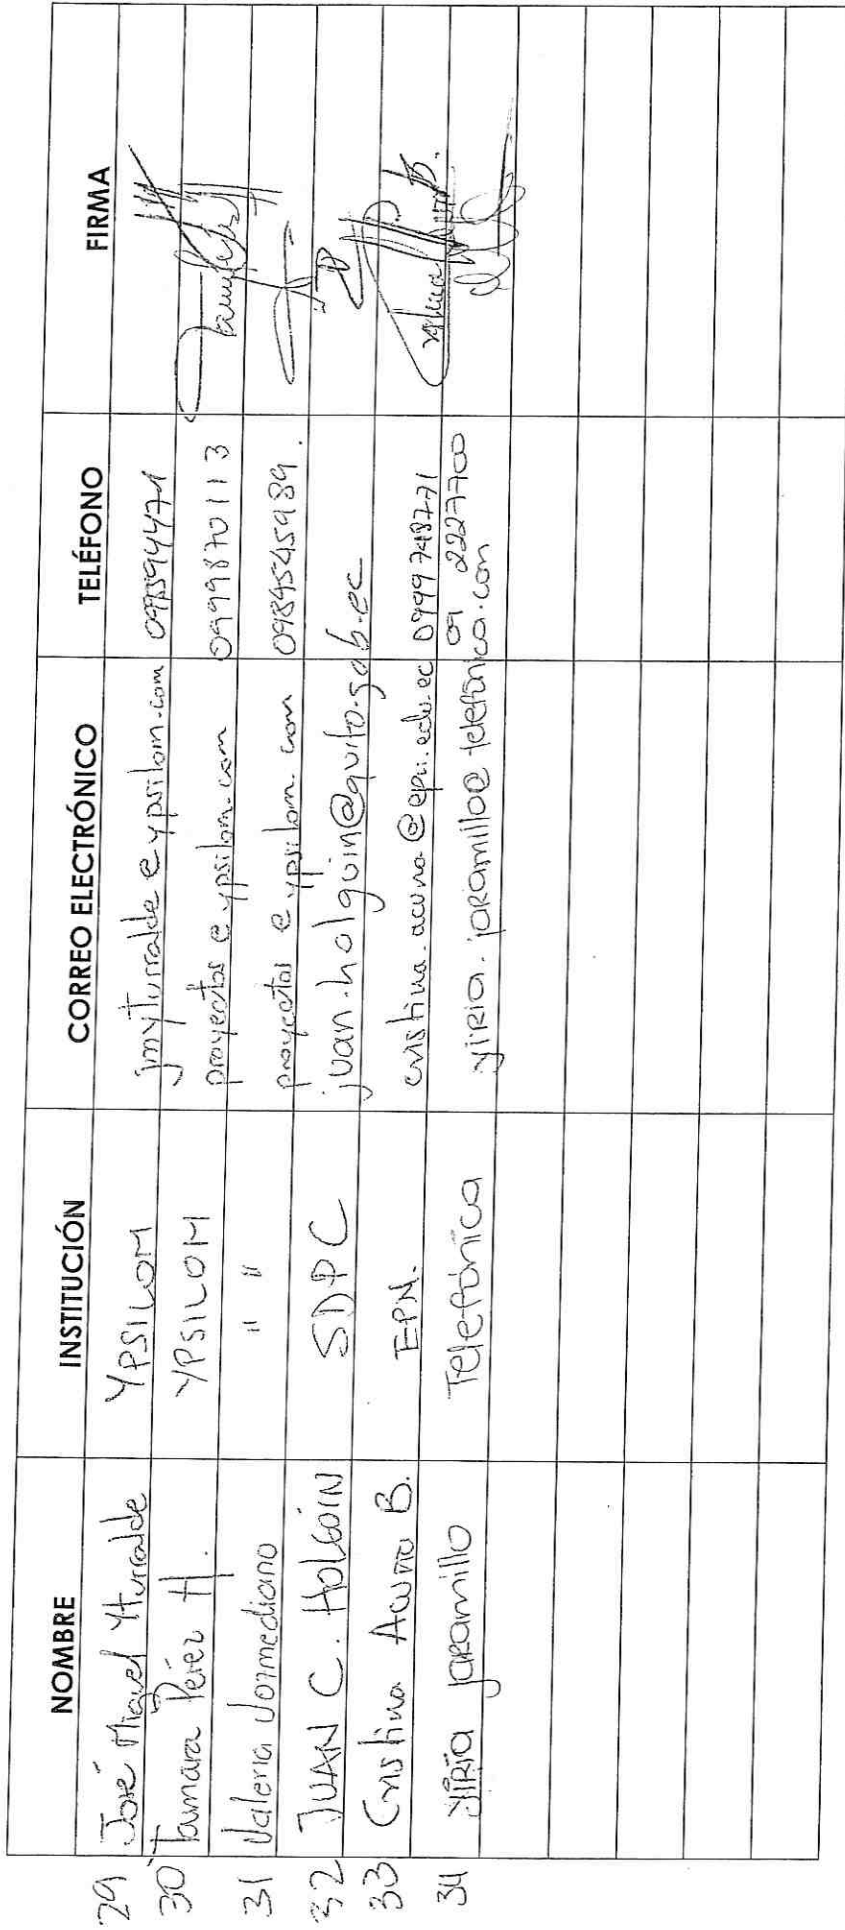 NOMBRE INSTITUCIÓN CORREO ELECTRÓNICO TELÉFONO FIRMA
29 José Miguel Yturralde YPSILOM jmyturralde@ypsilom.com
30 Tamara Pérez H. YPSILOM proyectos@ypsilom.com 0999870113
31 Valeria " " proyectos@ypsilom.com 0984545989.
32 JUAN C. HOLGUÍN SDPC juan.holguin@quito.gob.ec
33 Cristina Acuña B. EPN. cristina.acuna@epn.edu.ec 0999748771
34 yiRia jaRamillo Telefónica yiria.jaRamillo@telefonica.com 09 2227700